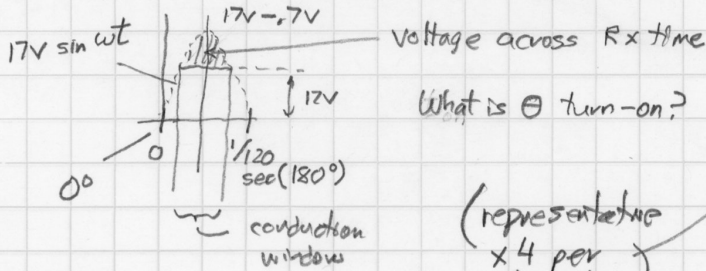 17V-.7V
17V sin ωt
voltage across R x time
12V
What is θ turn-on?
0
1/120
sec (180°)
0°
conduction
window
(representative
x 4 per)